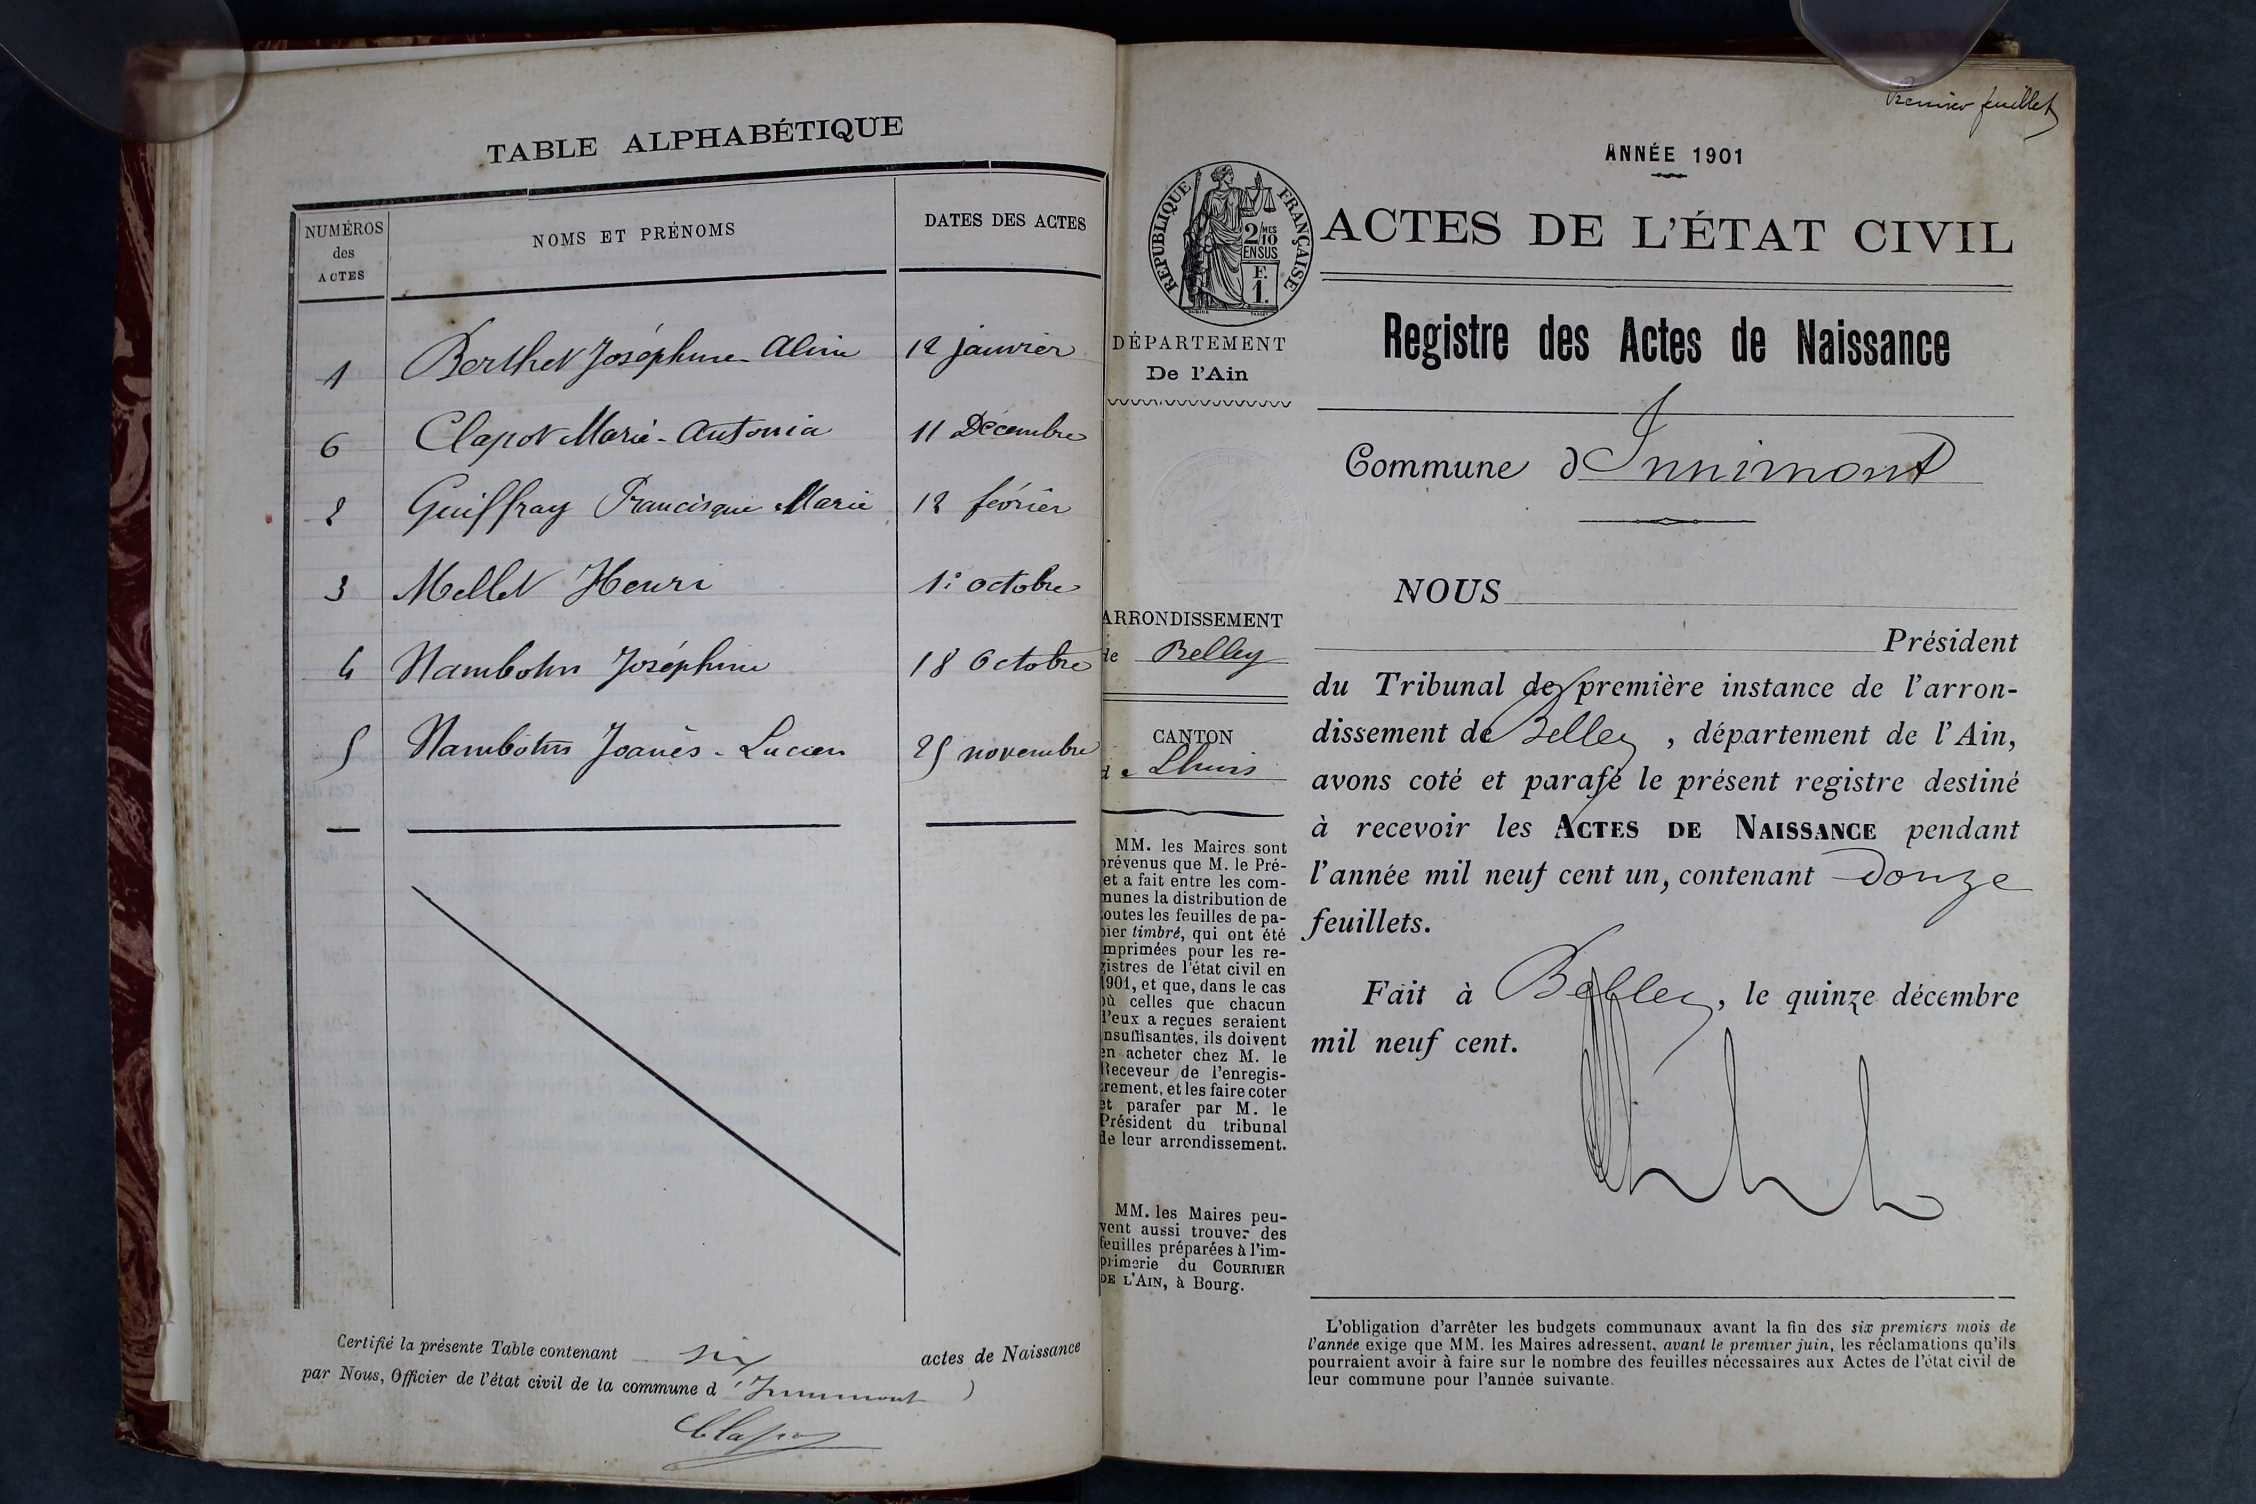 TABLE ALPHABÉTIQUE
NUMÉROS des ACTES
NOMS ET PRÉNOMS
DATES DES ACTES
1 Berthet Joséphine-Aline 12 janvier
6 Clapot Marie-Antonia 11 Décembre
2 Guiffray Francisque Marie 12 février
3 Mellet Henri 1° octobre
4 Nambotin Joséphine 18 Octobre
5 Nambotin Joanès-Lucien 25 novembre
Certifié la présente Table contenant six actes de Naissance
par Nous, Officier de l'état civil de la commune d'Innimont
Clapot
Premier feuillet
ANNÉE 1901
RÉPUBLIQUE FRANÇAISE
2/10 MES
EN SUS
F.
1.
DÉPARTEMENT
De l'Ain
ARRONDISSEMENT
de Belley
CANTON
de Lhuis
MM. les Maires sont
prévenus que M. le Pré-
et a fait entre les com-
munes la distribution de
toutes les feuilles de pa-
pier timbré, qui ont été
imprimées pour les re-
gistres de l'état civil en
1901, et que, dans le cas
où celles que chacun
d'eux a reçues seraient
insuffisantes, ils doivent
en acheter chez M. le
Receveur de l'enregis-
trement, et les faire coter
et parafer par M. le
Président du tribunal
de leur arrondissement.
MM. les Maires peu-
vent aussi trouver des
feuilles préparées à l'im-
primerie du COURRIER
DE L'AIN, à Bourg.
ACTES DE L'ÉTAT CIVIL
Registre des Actes de Naissance
Commune d'Innimont
NOUS
Président
du Tribunal de première instance de l'arron-
dissement de Belley, département de l'Ain,
avons coté et parafé le présent registre destiné
à recevoir les ACTES DE NAISSANCE pendant
l'année mil neuf cent un, contenant douze
feuillets.
Fait à Belley, le quinze décembre
mil neuf cent.
L'obligation d'arrêter les budgets communaux avant la fin des six premiers mois de
l'année exige que MM. les Maires adressent, avant le premier juin, les réclamations qu'ils
pourraient avoir à faire sur le nombre des feuilles nécessaires aux Actes de l'état civil de
leur commune pour l'année suivante.